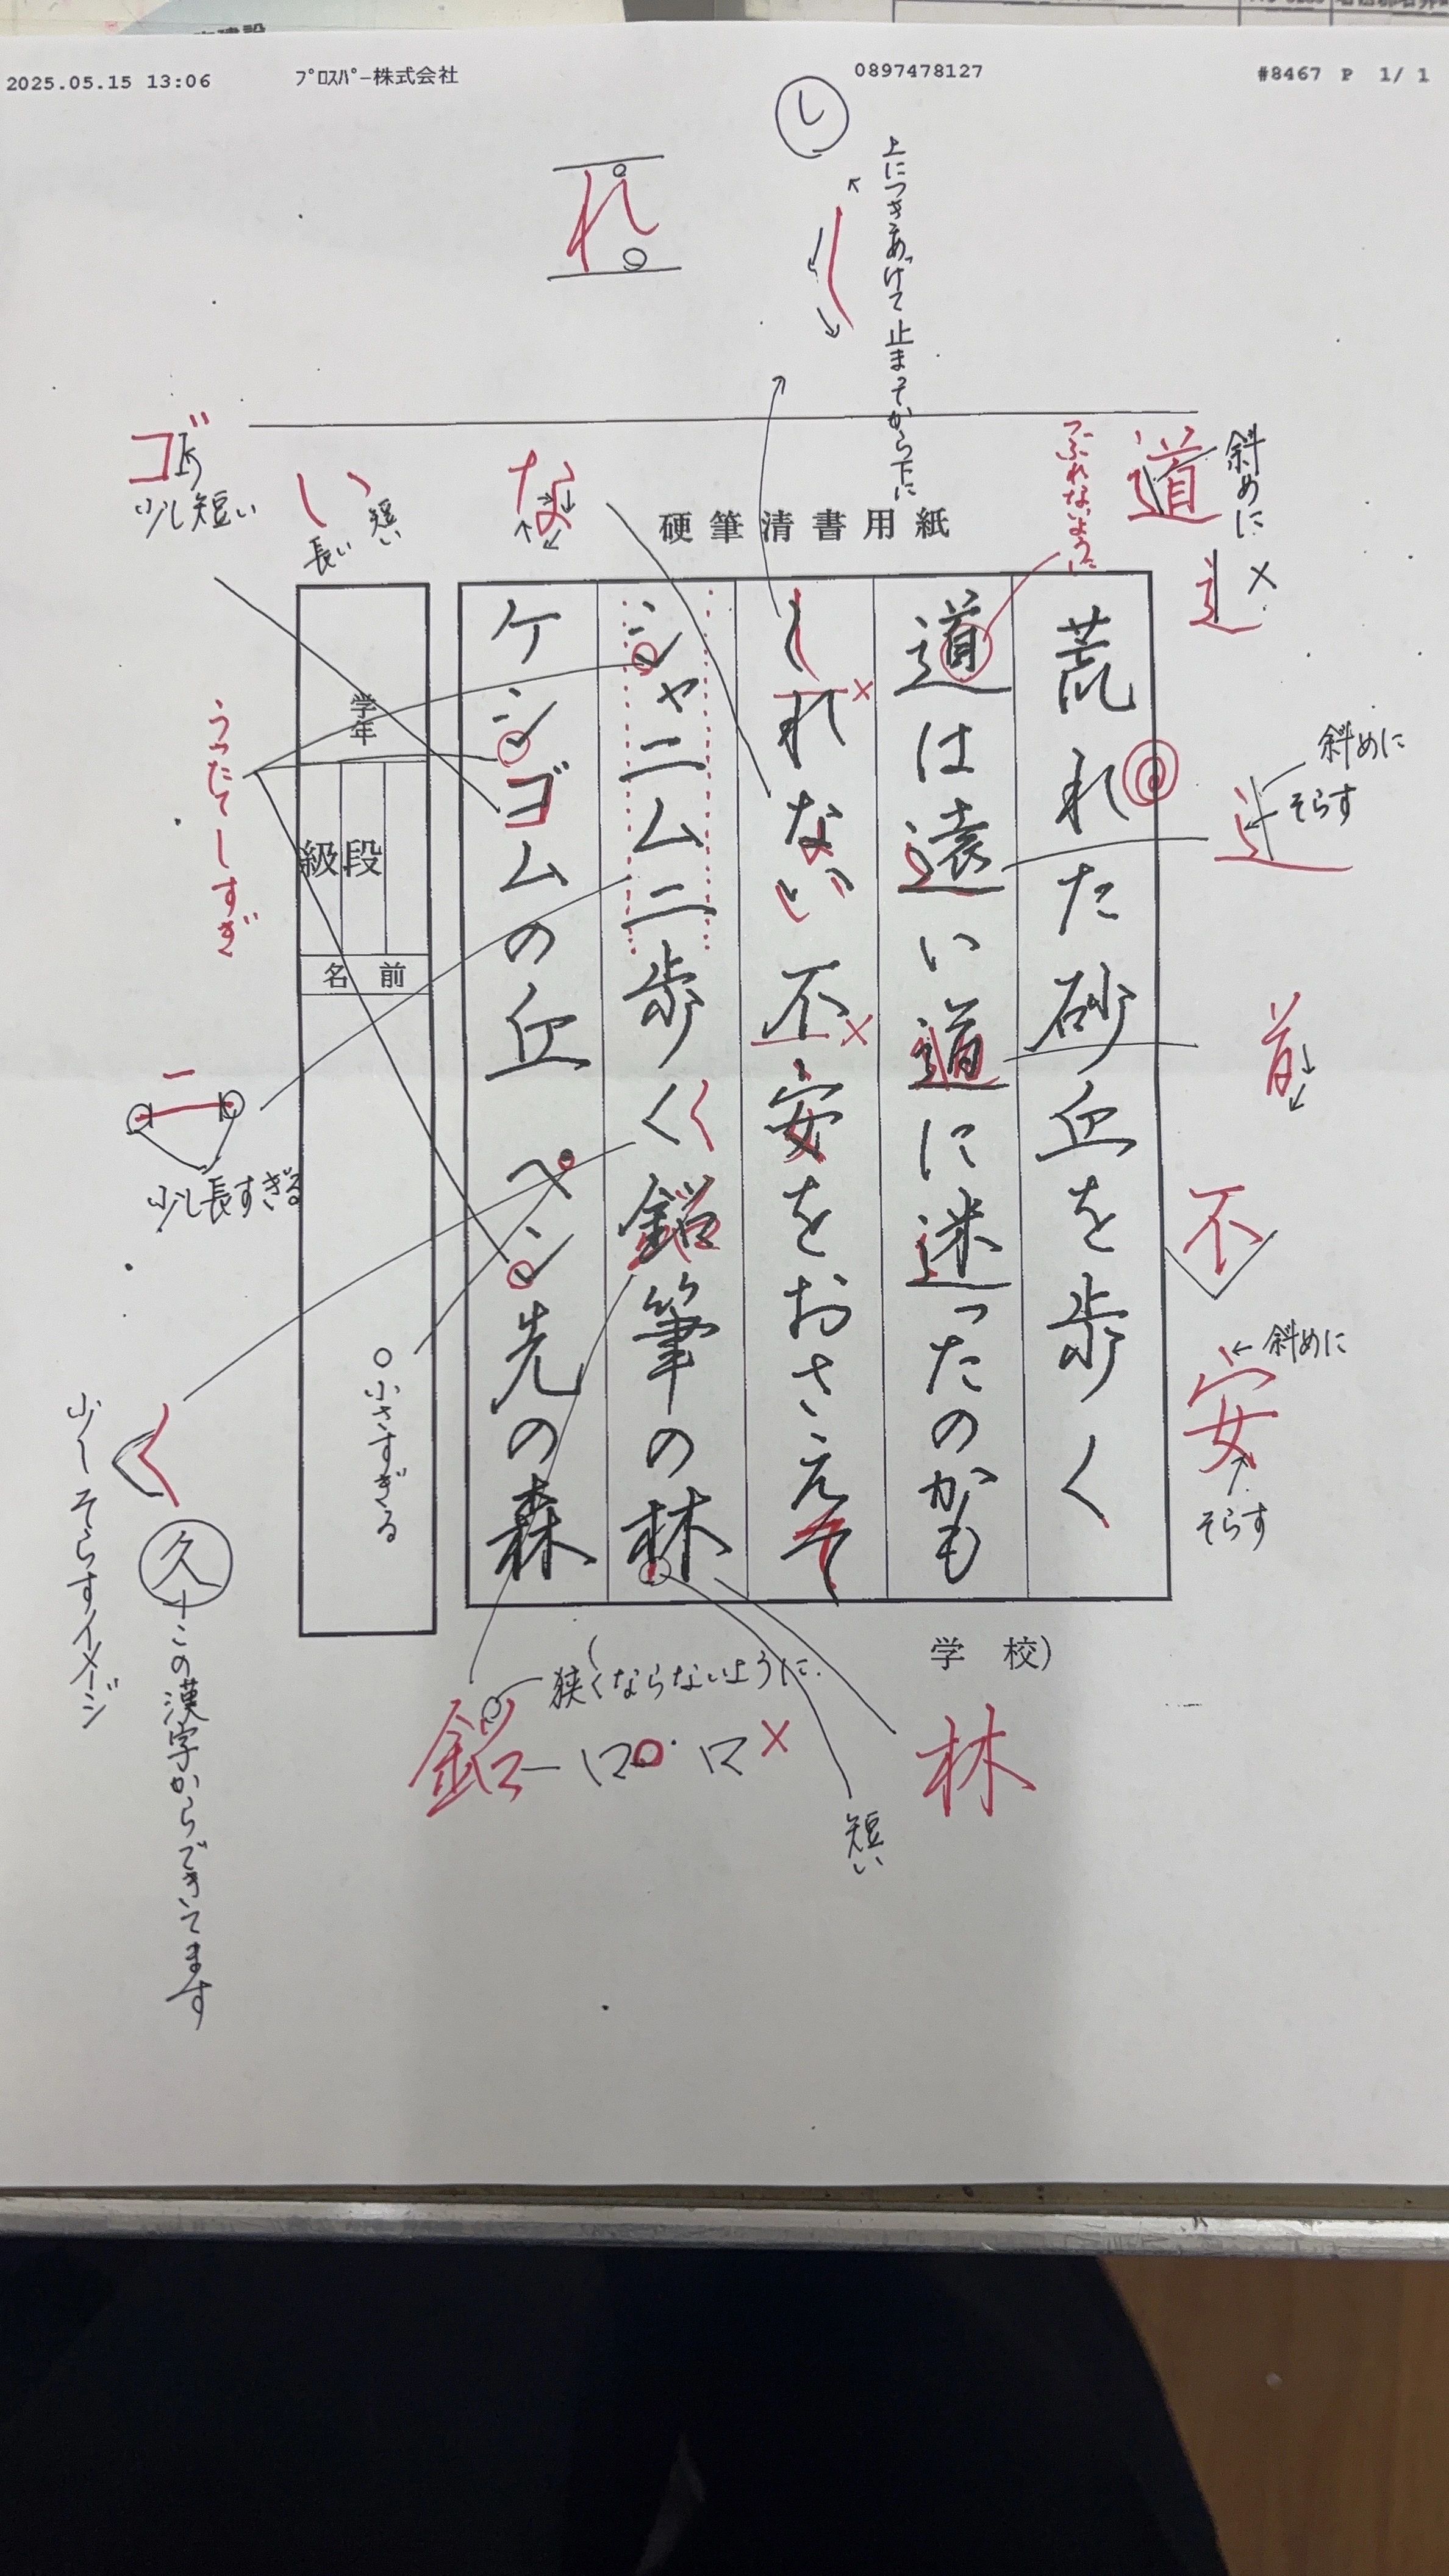 2025.05.15 13:06 プロスパー株式会社 0897478127 #8467 P 1/ 1
し
上につきあげて止まってから下に
れ
斜めに
道
つぶれないように
な
い
長い
短い
ゴ
少し短い
硬筆清書用紙
荒れた砂丘を歩く
道は遠い道に迷ったのかも
しれない不安をおさえて
シャニムニ歩く鉛筆の林
ケシゴムの丘 ペン先の森
学年
級段
名前
斜めに
そらす
不
斜めに
安
そらす
うったてしすぎ
ニ
少し長すぎる
○小さすぎる
く
少しそらすイメージ
久
この漢字からできてます
学校)
狭くならないように
鉛
林
短い